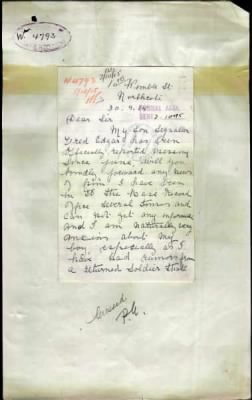 W 4793
# 4793
Womble St
Northcote
20.9.
Dear Sir
My Son Signaller
Fred Edgar has been
officially reported missing
since June. Will you
kindly forward any news
of him. I have been
in St
Office several times and
can not get any informa
and I am naturally very
anxious about my
boy, especially as I
have had rumours from
a returned Soldier
P.A.